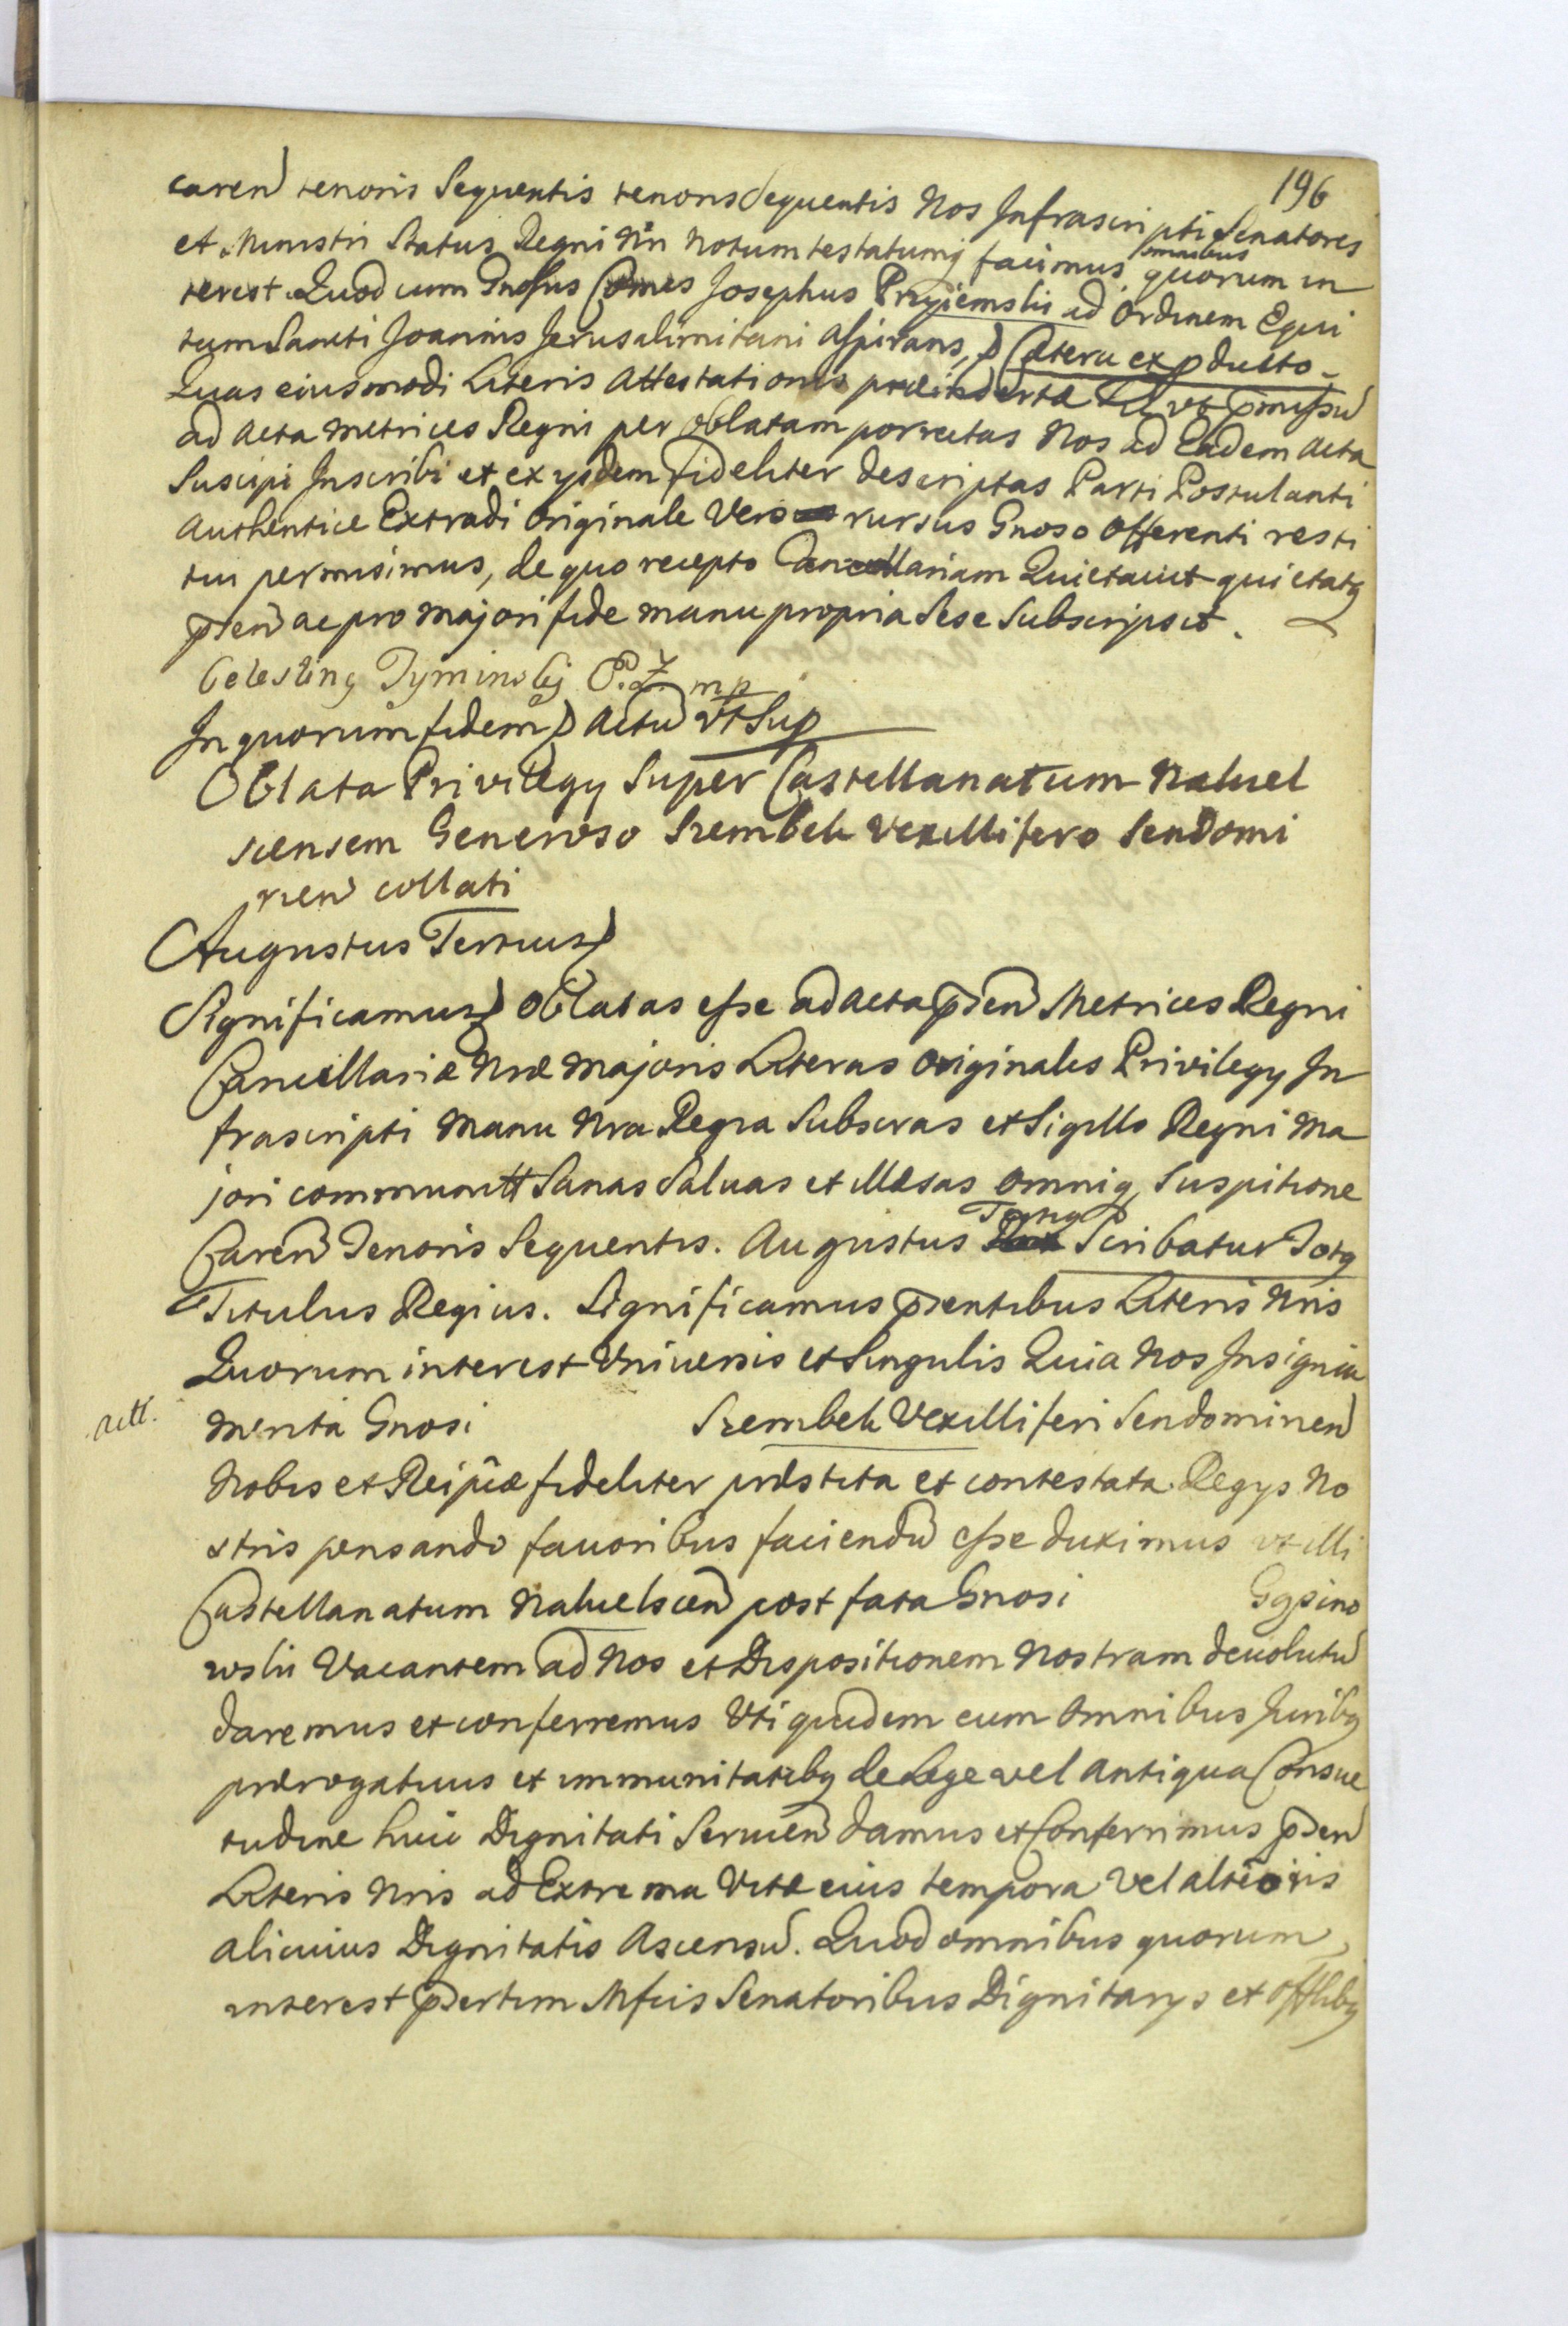 196
caren tenoris Sequentis tenoris Sequentis Nos Infrascripti Senatores
et Ministri Status Regni Nri Notum testatumq facimus omnibus quorum in
terest. Quod cum Gnosus Comes Josephus Przyiemski ad Ordinem Equi
tum Sancti Joannis Jerusalimitani Aspirans, Cætera ex pducto
Quas eiusmodi Literis Attestationis præinserta ut pmissu
ad Acta Metrices Regni per Oblatam porrectas Nos ad Eadem Acta
Suscipi Inscribi et ex ysdem Fideliter descriptas Parti Postulanti
Authentice Extradi Originale Vero rursus Gnoso Offerenti resti
tui permisimus, de quo recepto Cancellariam Quietavit quietatq
pden ac pro majori fide manu propria Sese Subscripsit.
Celesting Tyminskj P. Z. mp
In quorum fidem Actu vt Sup
Oblata Privilegy Super Castellanatum Nakiel
scensem Generoso Szembek Vexillifero Sendomi
rien collati
Augustus Tertius
Significamus Oblatas esse ad Acta pden Metrices Regni
Cancellariæ Nræ Majoris Literas Originales Privilegy In
frascripti Manu Nra Regia Subscras et Sigillo Regni Ma
jori communitt Sanas Salvas et illæsas omniq Suspitione
Caren Tenoris Sequentis. Augustus Tertiq Scribatur Totq
Titulus Regius. Significamus pdentibus Literis Nris
Quorum interest Vniuersis et Singulis Quia Nos Insignia
Merita Gnosi Szembek Vexilliferi Sendomirien
Nobis et Reipcæ fideliter præstita et contestata Regys No
stris pensando fauoribus faciendu esse duximus vt illi
Castellanatum Nakielscen post fata Gnosi Gąsino
wski Vacantem ad Nos et Dispositionem Nostram deuolutu
daremus et conferremus Vti quidem cum Omnibus Juribq
prærogatiuis et immunitatibq de Lege vel Antiqua Consue
tudine huic Dignitati Seruien damus et Conferrimus pden
Literis Nris ad Extrema Vitæ eius tempora Vel altioris
alicuius Dignitatis Ascensu. Quod omnibus quorum
interest psertim Mfcis Senatoribus Dignitarys et Offlibq